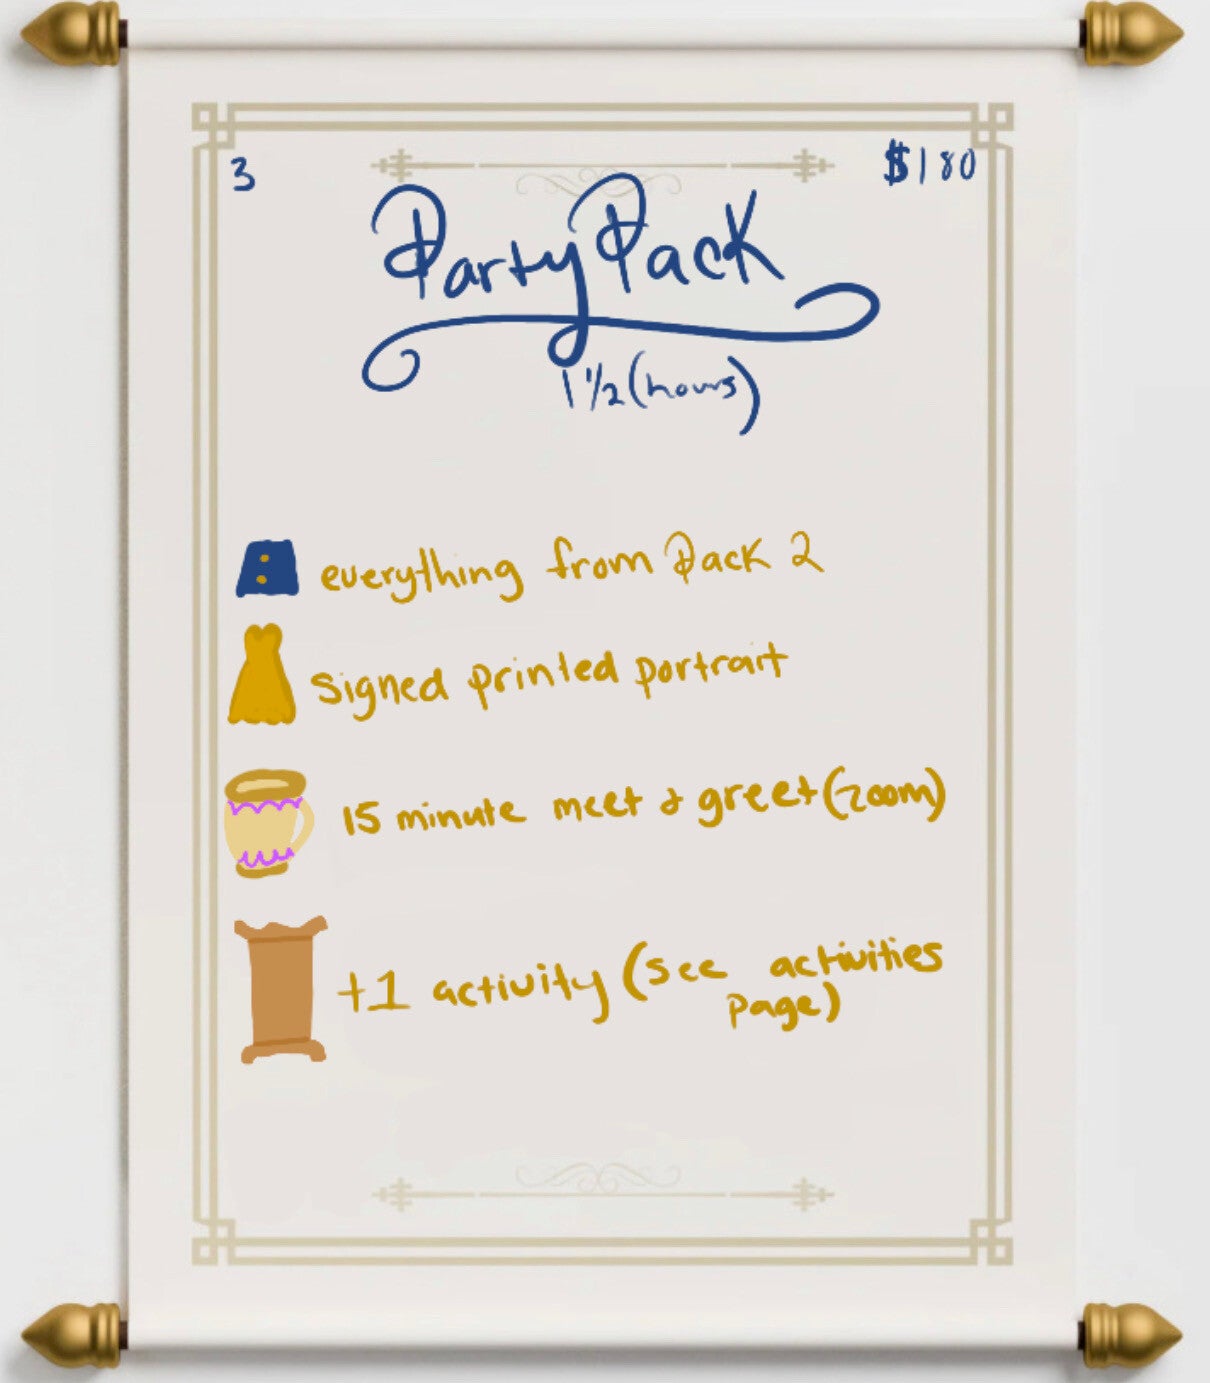 3
$180
Party Pack
1 1/2 (hours)
everything from Pack 2
signed printed portrait
15 minute meet & greet (zoom)
+1 activity (see activities
page)